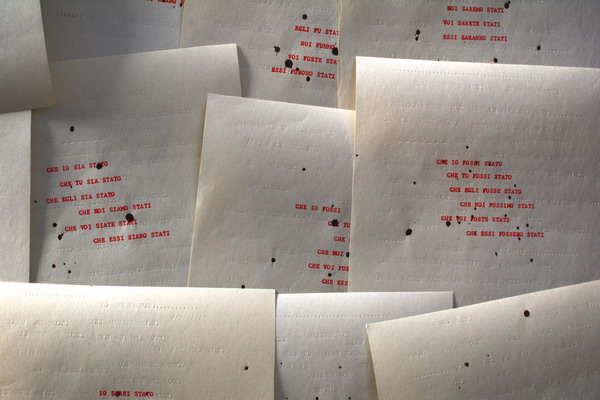 NOI SAREMO STATI
VOI SARETE STATI
ESSI SARANNO STATI
EGLI FU STA
NOI FUMMO
VOI FOSTE STA
ESSI FURONO STATI
CHE IO SIA STATO
CHE TU SIA STATO
CHE EGLI SIA STATO
CHE NOI SIAMO STATI
CHE VOI SIATE STATI
CHE ESSI SIANO STATI
CHE IO FOSSI
CHE TU
CHE
CHE NOI
CHE VOI FOS
CHE ESS
CHE IO FOSSI STATO
CHE TU FOSSI STATO
CHE EGLI FOSSE STATO
CHE NOI FOSSIMO STATI
CHE VOI FOSTE STATI
CHE ESSI FOSSERO STATI
IO SAREI STATO